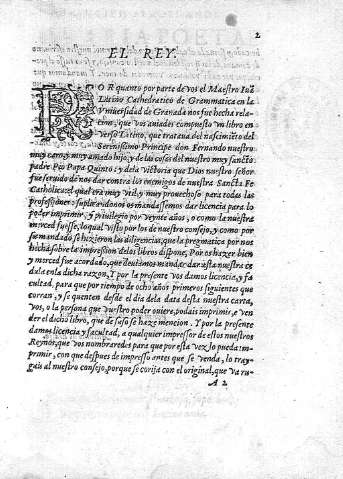 2
EL REY.
POR quanto por parte de vos el Maestro Iuã
Latino Cathedratico de Grammatica en la
Vniuersidad de Granada nos fue hecha rela-
cion, que vos auiades compuesto vn libro en
verso Latino, que trataua del nascimiẽto del
Serenissimo Principe don Fernando nuestro
muy caro, y muy amado hijo, y de las cosas del nuestro muy sancto
padre Pio Papa Quinto, y de la victoria que Dios nuestro señor
fue seruido de nos dar contra los enemigos de nuestra Sancta Fe
Catholica: el qual era muy vtil, y muy prouechoso para todas las
professiones: suplicandonos os mandassemos dar licencia para lo
poder imprimir, y priuilegio por veynte años, o como la nuestra
merced fuesse, lo qual visto por los de nuestro consejo, y como por
su mandado se hizieron las diligencias, que la pregmatica por nos
hecha sobre la impression de los libros dispone, Por os hazer bien
y merced fue acordado, que deuiamos mandar dar esta nuestra ce
dula en la dicha razon, Y por la presente vos damos licencia, y fa
cultad, para que por tiempo de ocho años primeros siguientes que
corran, y se quenten desde el dia dela data desta nuestra carta,
vos, o la persona que vuestro poder ouiere, podais imprimir, e ven
der el dicho libro, que de suso se haze mencion. Y por la presente
damos licencia y facultad, a qualquier impressor de estos nuestros
Reynos, que vos nombraredes para que por esta vez lo pueda im-
primir, con que despues de impresso antes que se venda, lo tray-
gais al nuestro consejo, porque se corrija con el original, que va ru-
A 2